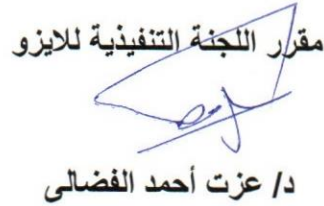 مقرر اللجنة التنفيذية للايزو
د/ عزت أحمد الفضالى